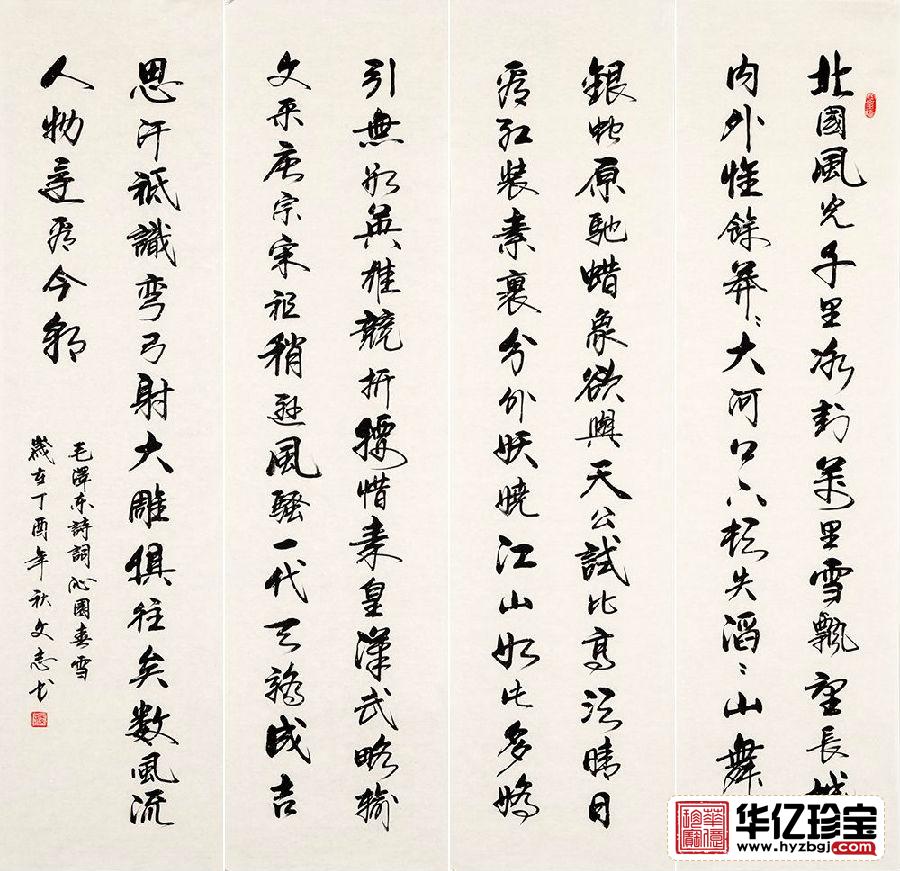 北國風光千里冰封萬里雪飄望長城
内外惟餘莽〻大河上下頓失滔〻山舞
銀蛇原馳蜡象欲與天公試比高须晴日
看红装素裹分外妖嬈江山如此多嬌
引無数英雄競折腰惜秦皇漢武略输
文采唐宗宋祖稍逊風騷一代天驕成吉
思汗祗識弯弓射大雕俱往矣数風流
人物還看今朝
毛澤东詩詞沁園春雪
歲在丁酉年秋文志书
華億珍寶
华亿珍宝
www.hyzbgj.com